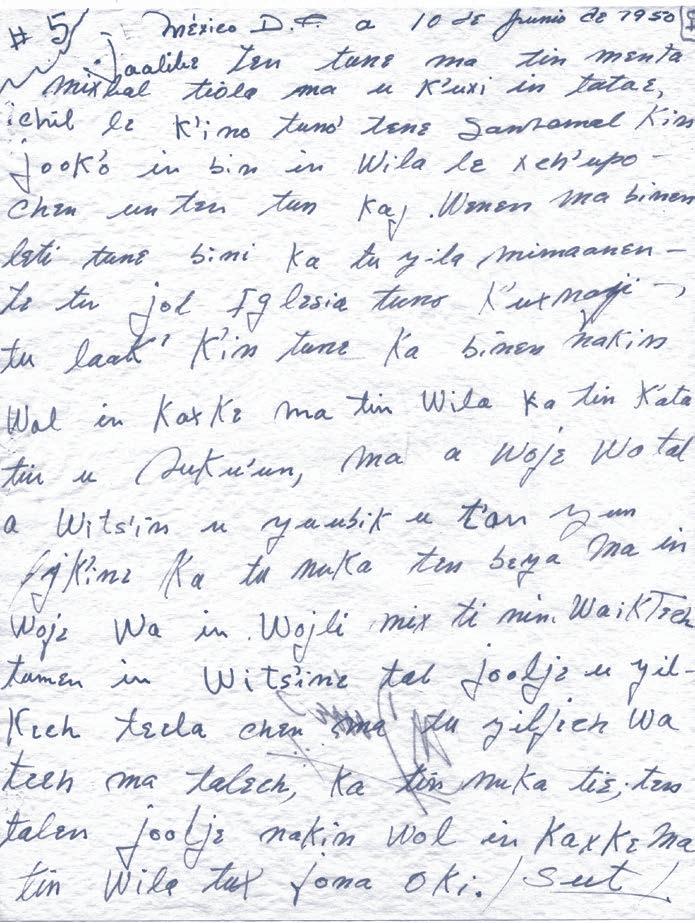 #5 México D.F. a 10 de Junio de 1950
Jaalibe ten tune ma tin menta
mixbal tiola ma u K'uxi in tatae,
ichil le K'ino tuno' tene Santomal Kin
jook'o in bin in Wila le xch'upo -
chen un ten tun Kaj. Wenen ma binen
leti tune bini Ka tu y-ila mimaanen -
te tu jol Iglesia tuno K'uxnaji -,
tu laak' K'in tune Ka binen nakin
Wol in KaxKe ma tin Wila Ka tin K'ata
tin u suku'un, ma a Woje Wo tal
a Wits'in u yuubik u t'an yun
K'ine Ka tu nuKa ten beya ma in
Woje Wa in Wojli mix ti nin. WaiKTech
tumen in Wits'ine tal joolje u yil-
Kech teela chen ma tu yiljech Wa
tech ma talech, Ka tin nuKa tie; ten
talen joolje nakin Wol in KaxKe Ma
tin Wila tux jona oKi. / Sut /